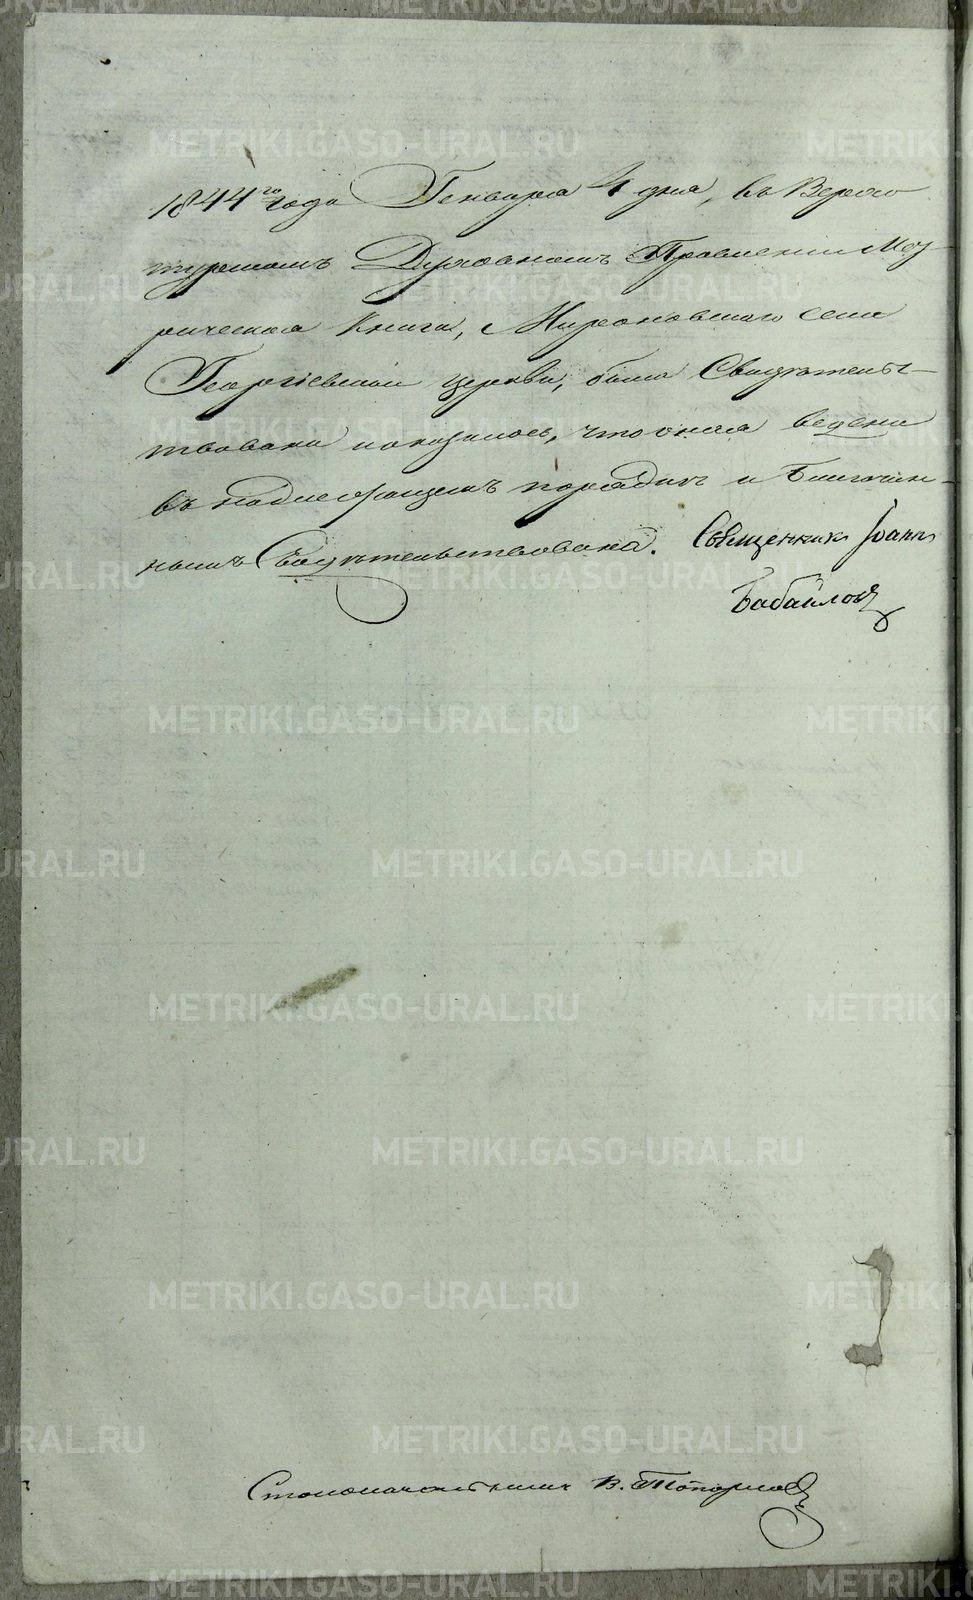 1844го года Генваря 4 дня, въ Верхо-
турскомъ Духовномъ Правленіи Мет-
рическая Книга, Мироновскаго села
Георгіевской церкви, была Свидѣтельс-
твована и оказалось, что оная ведена
въ надлежащемъ порядкѣ и Благочин-
нымъ Свидѣтельствована. Священникъ Іоаннъ
Бабайловъ
Столоначальникъ В. Топорковъ